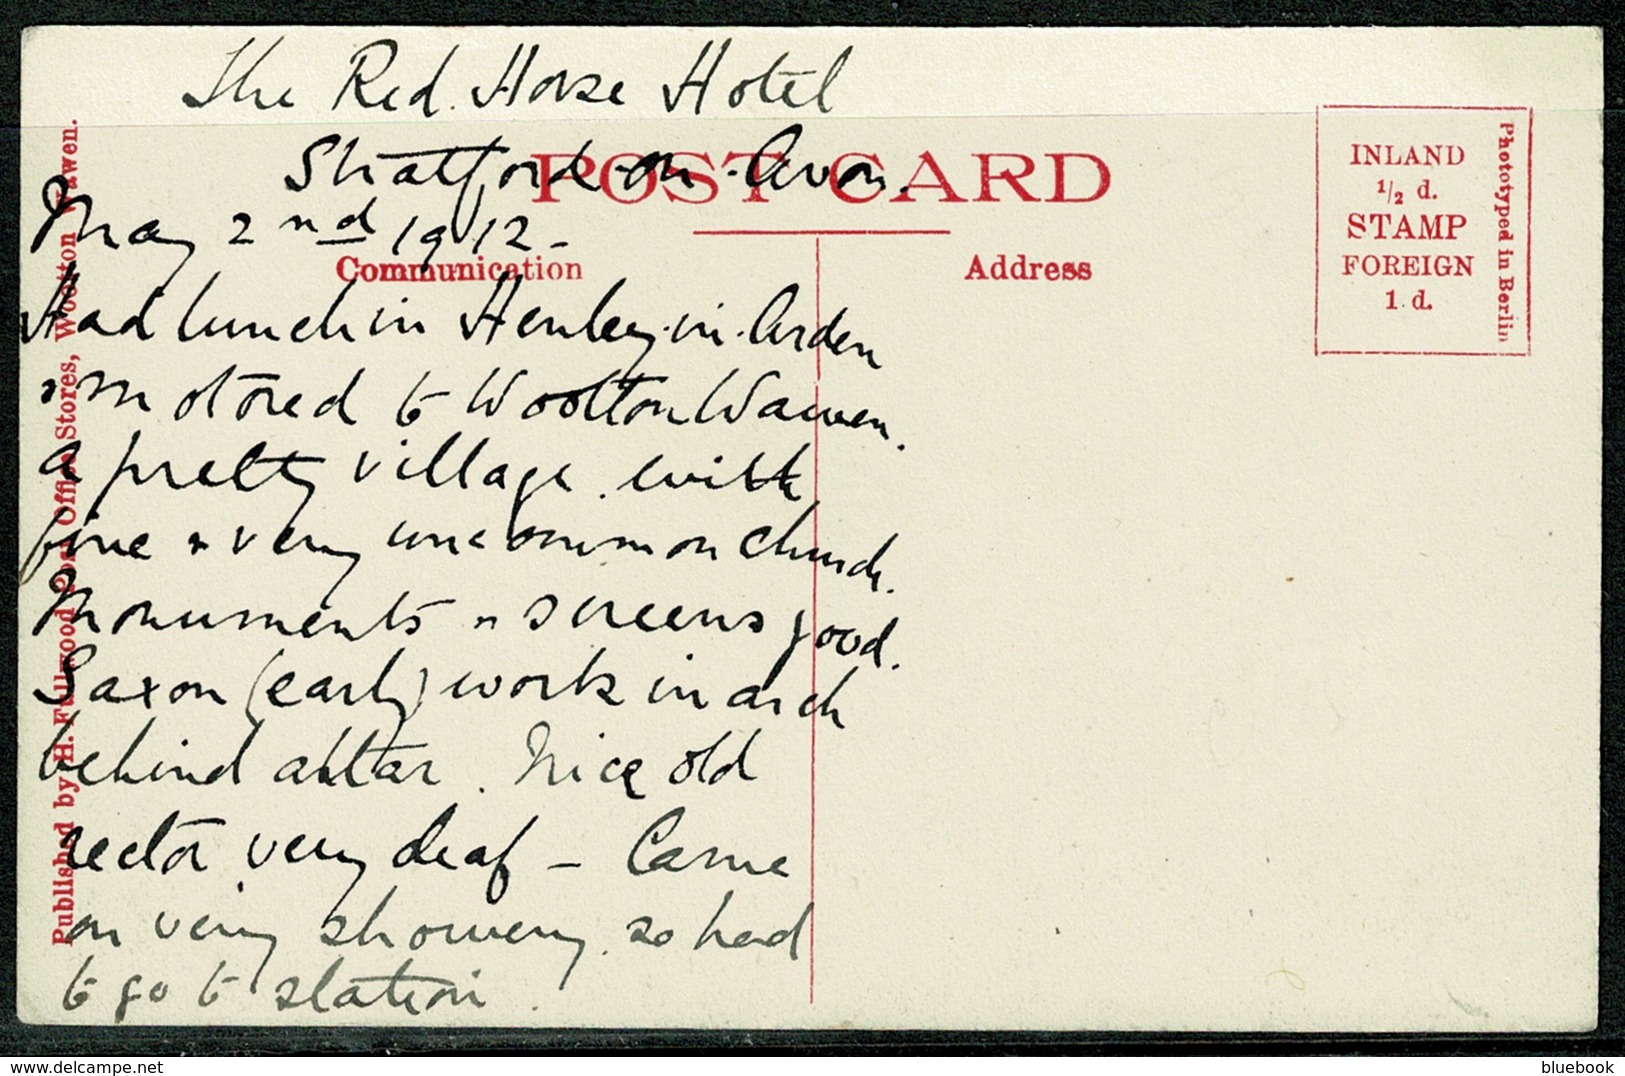 The Red Horse Hotel
Stratford-on-Avon.
May 2nd 1912 -
Had lunch in Henley-in-Arden
& motored to Wootton Wawen.
a pretty village with
fine & very uncommon church.
Monuments & screens good.
Saxon (early) work in arch
behind altar. Nice old
rector very deaf - Came
on very showery so had
to go to station.
POST CARD
Communication
Address
INLAND
1/2 d.
STAMP
FOREIGN
1 d.
Phototyped in Berlin
Published by H. Fullwood Post Office Stores, Wootton Wawen.
delcampe.net
bluebook